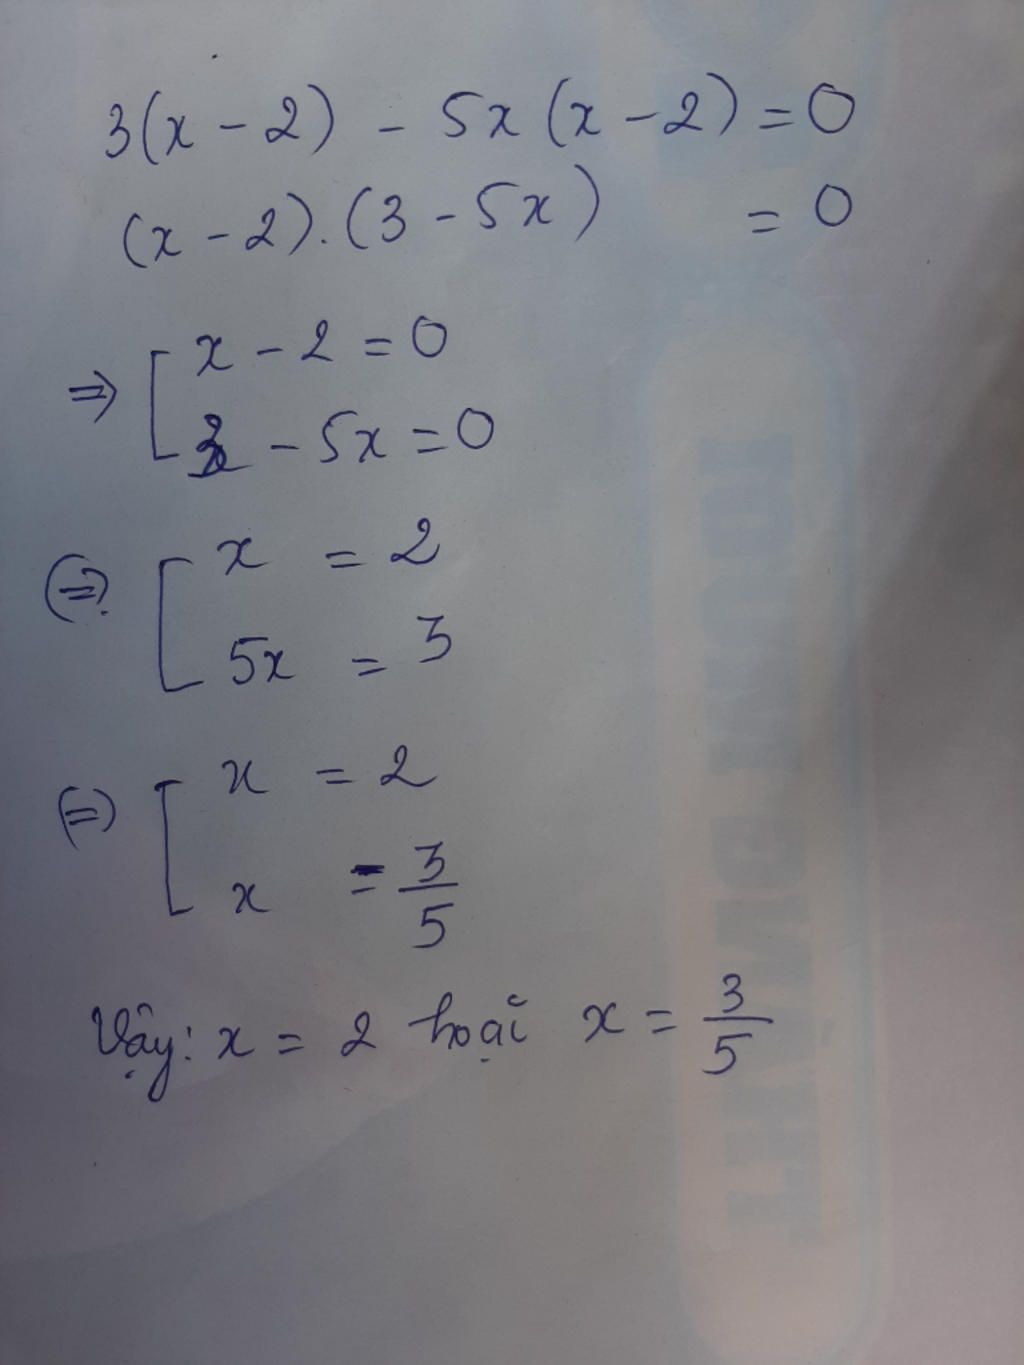 3(x - 2) - 5x (x - 2) = 0
(x - 2).(3 - 5x) = 0
⇒ [ x - 2 = 0
3 - 5x = 0
⇔ [ x = 2
5x = 3
⇔ [ x = 2
x = 3/5
Vậy: x = 2 hoặc x = 3/5